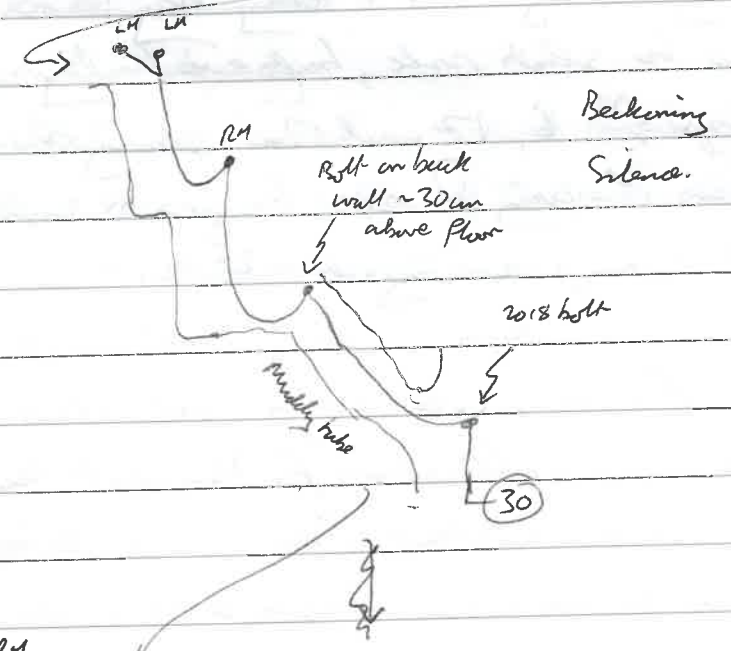 LH LH
RH
Beckoning
Silence.
Bolt on back
wall ~30cm
above floor
2018 bolt
Muddy tube
30